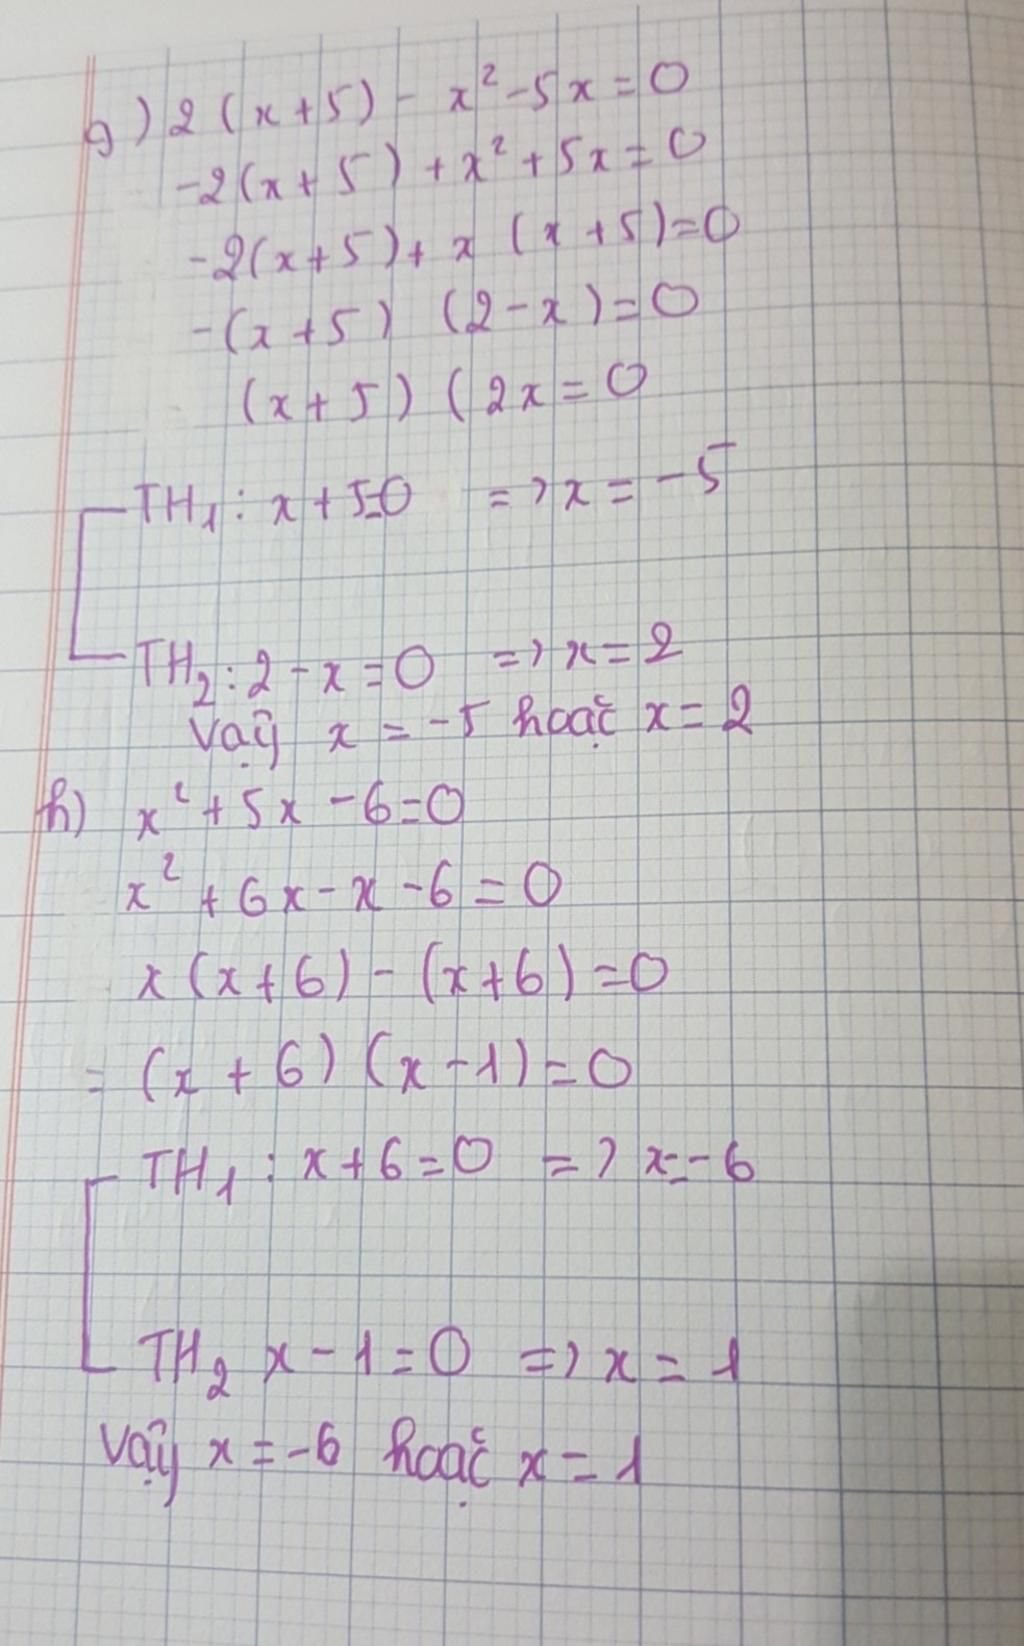 g) 2(x+5) - x² - 5x = 0
-2(x+5) + x² + 5x = 0
-2(x+5) + x (x+5) = 0
-(x+5) (2-x) = 0
(x+5) (2x = 0
TH₁: x+5=0 => x = -5
TH₂: 2-x=0 => x = 2
Vậy x = -5 hoặc x = 2
h) x² + 5x - 6 = 0
x² + 6x - x - 6 = 0
x(x+6) - (x+6) = 0
= (x+6) (x-1) = 0
TH₁: x+6=0 => x=-6
TH₂ x-1=0 => x = 1
Vậy x = -6 hoặc x = 1